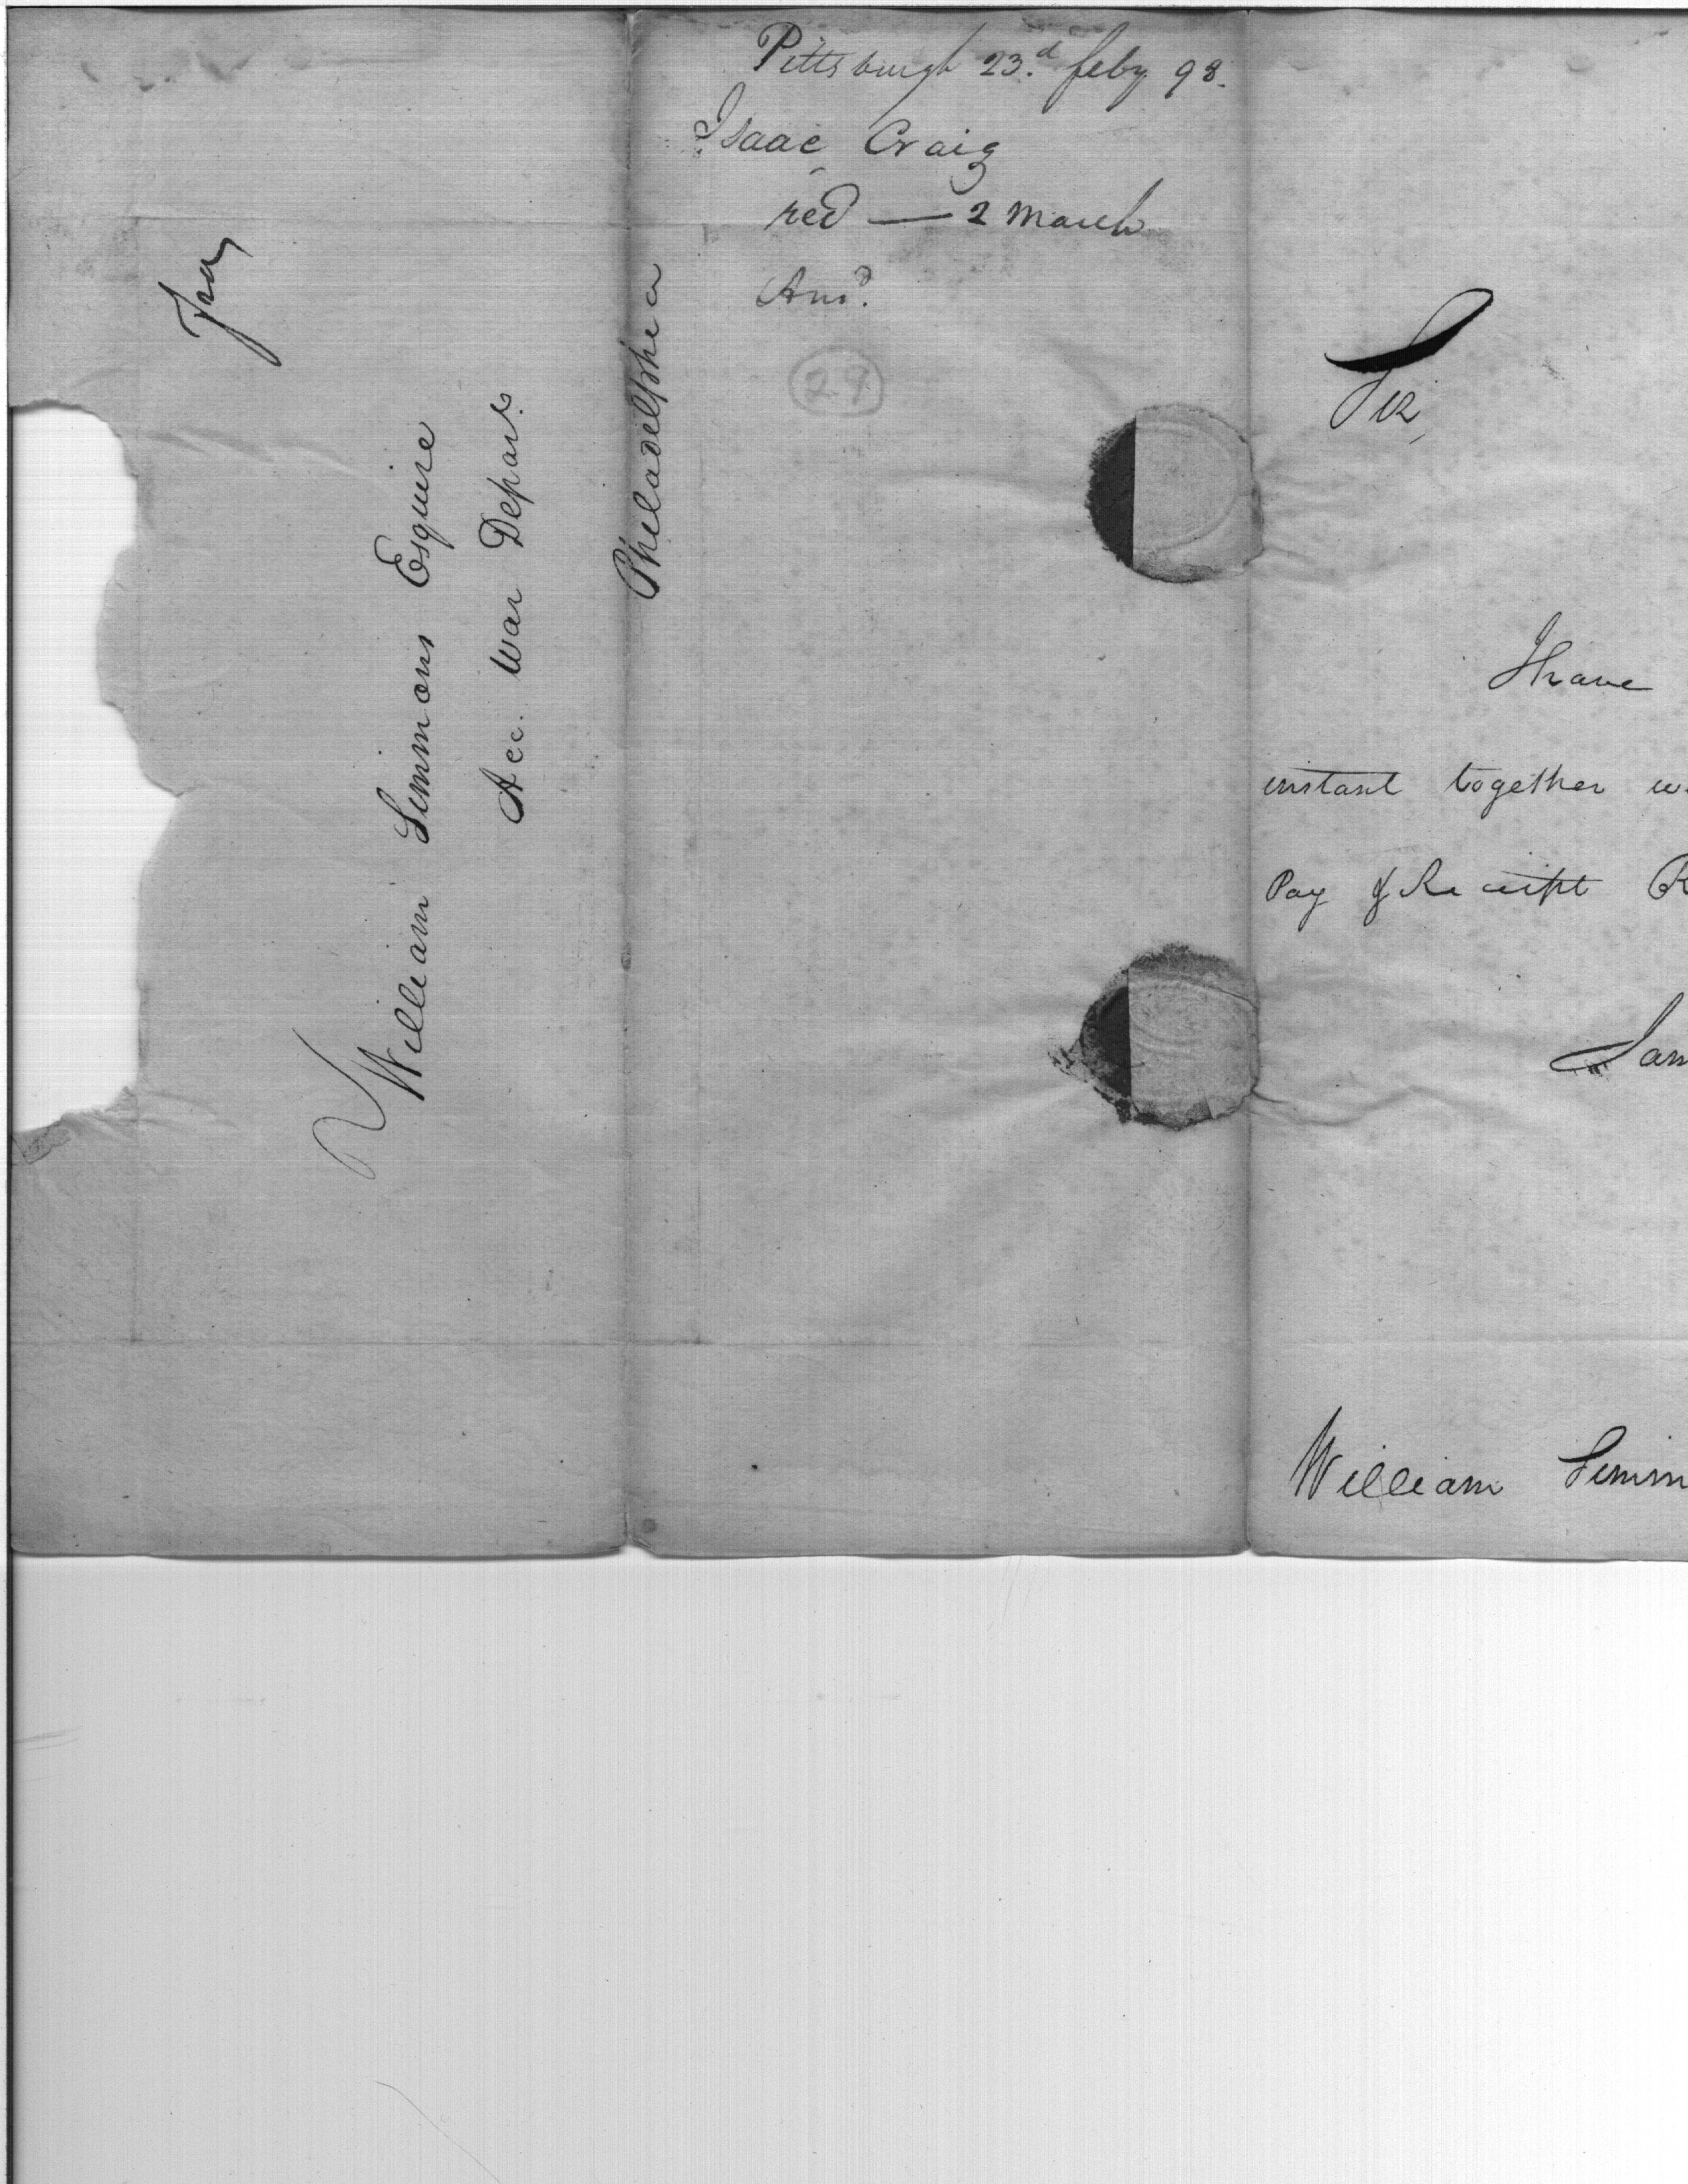 Pittsburgh 23.d feby 98.
Isaac Craig
red — 2 March
Ansd.
29
Free
William Simmons Esquire
Acc. War Depart.
Philadelphia
Sir,
I have
instant together
Pay & Receipt
William Simm